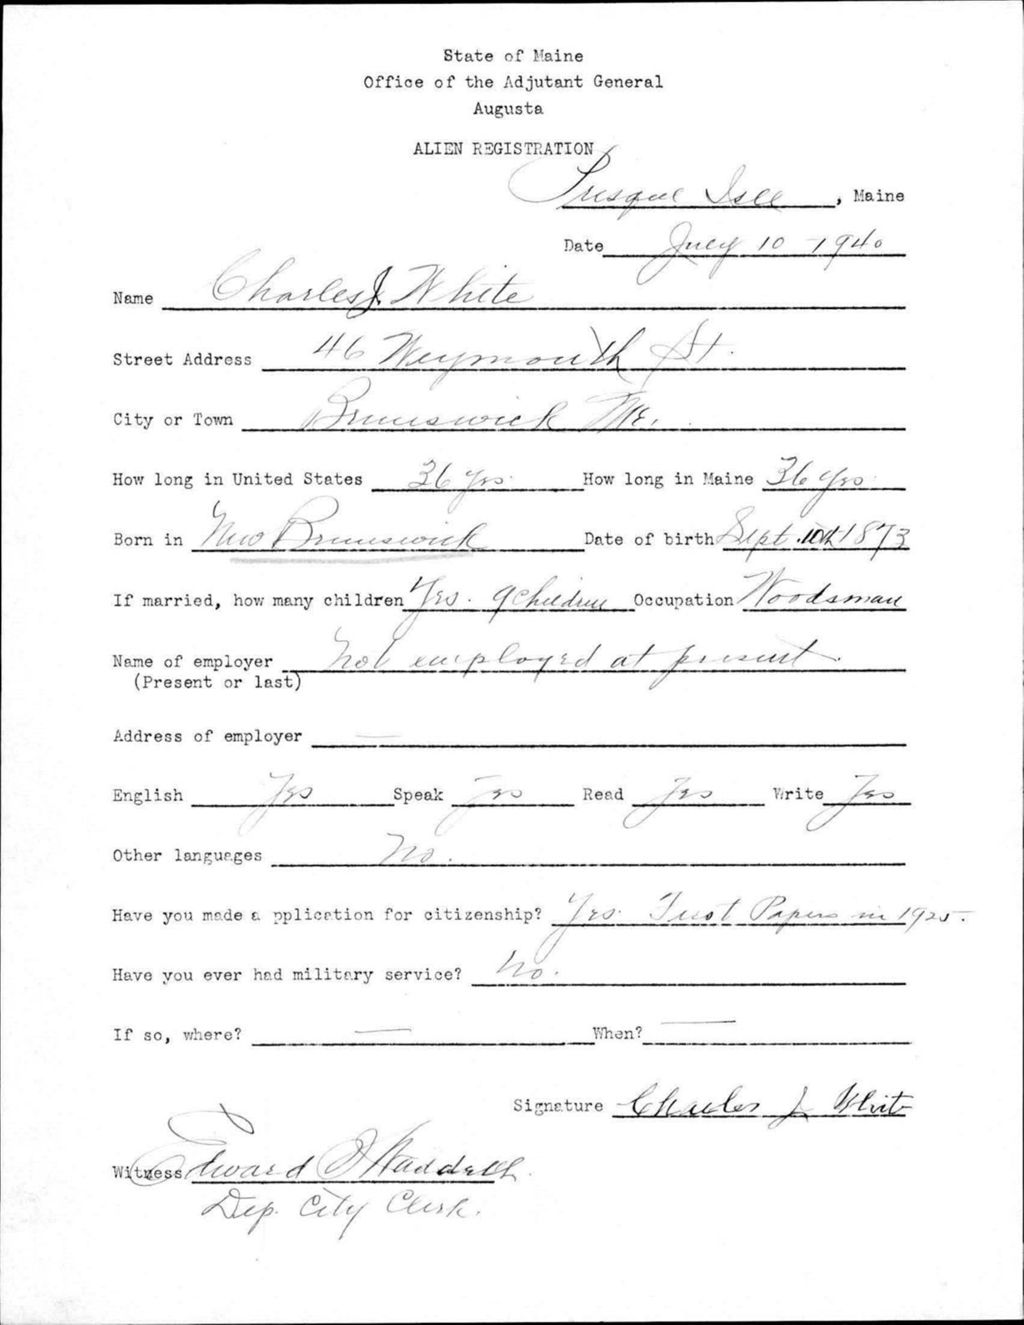 State of Maine
Office of the Adjutant General
Augusta
ALIEN REGISTRATION
Presque Isle, Maine
Date July 10 - 1940
Name Charles J. White
Street Address 46 Weymouth St.
City or Town Brunswick Me.
How long in United States 36 yrs. How long in Maine 36 yrs.
Born in New Brunswick Date of birth Sept. 10th 1873
If married, how many children Yes. 9 Children Occupation Woodsman
Name of employer Not employed at present.
(Present or last)
Address of employer —
English Yes Speak Yes Read Yes Write Yes
Other languages No.
Have you made a pplication for citizenship? Yes. First Papers in 1925.
Have you ever had military service? No.
If so, where? — When? —
Signature Charles J White
Witness Edward
Dep. City Clerk.